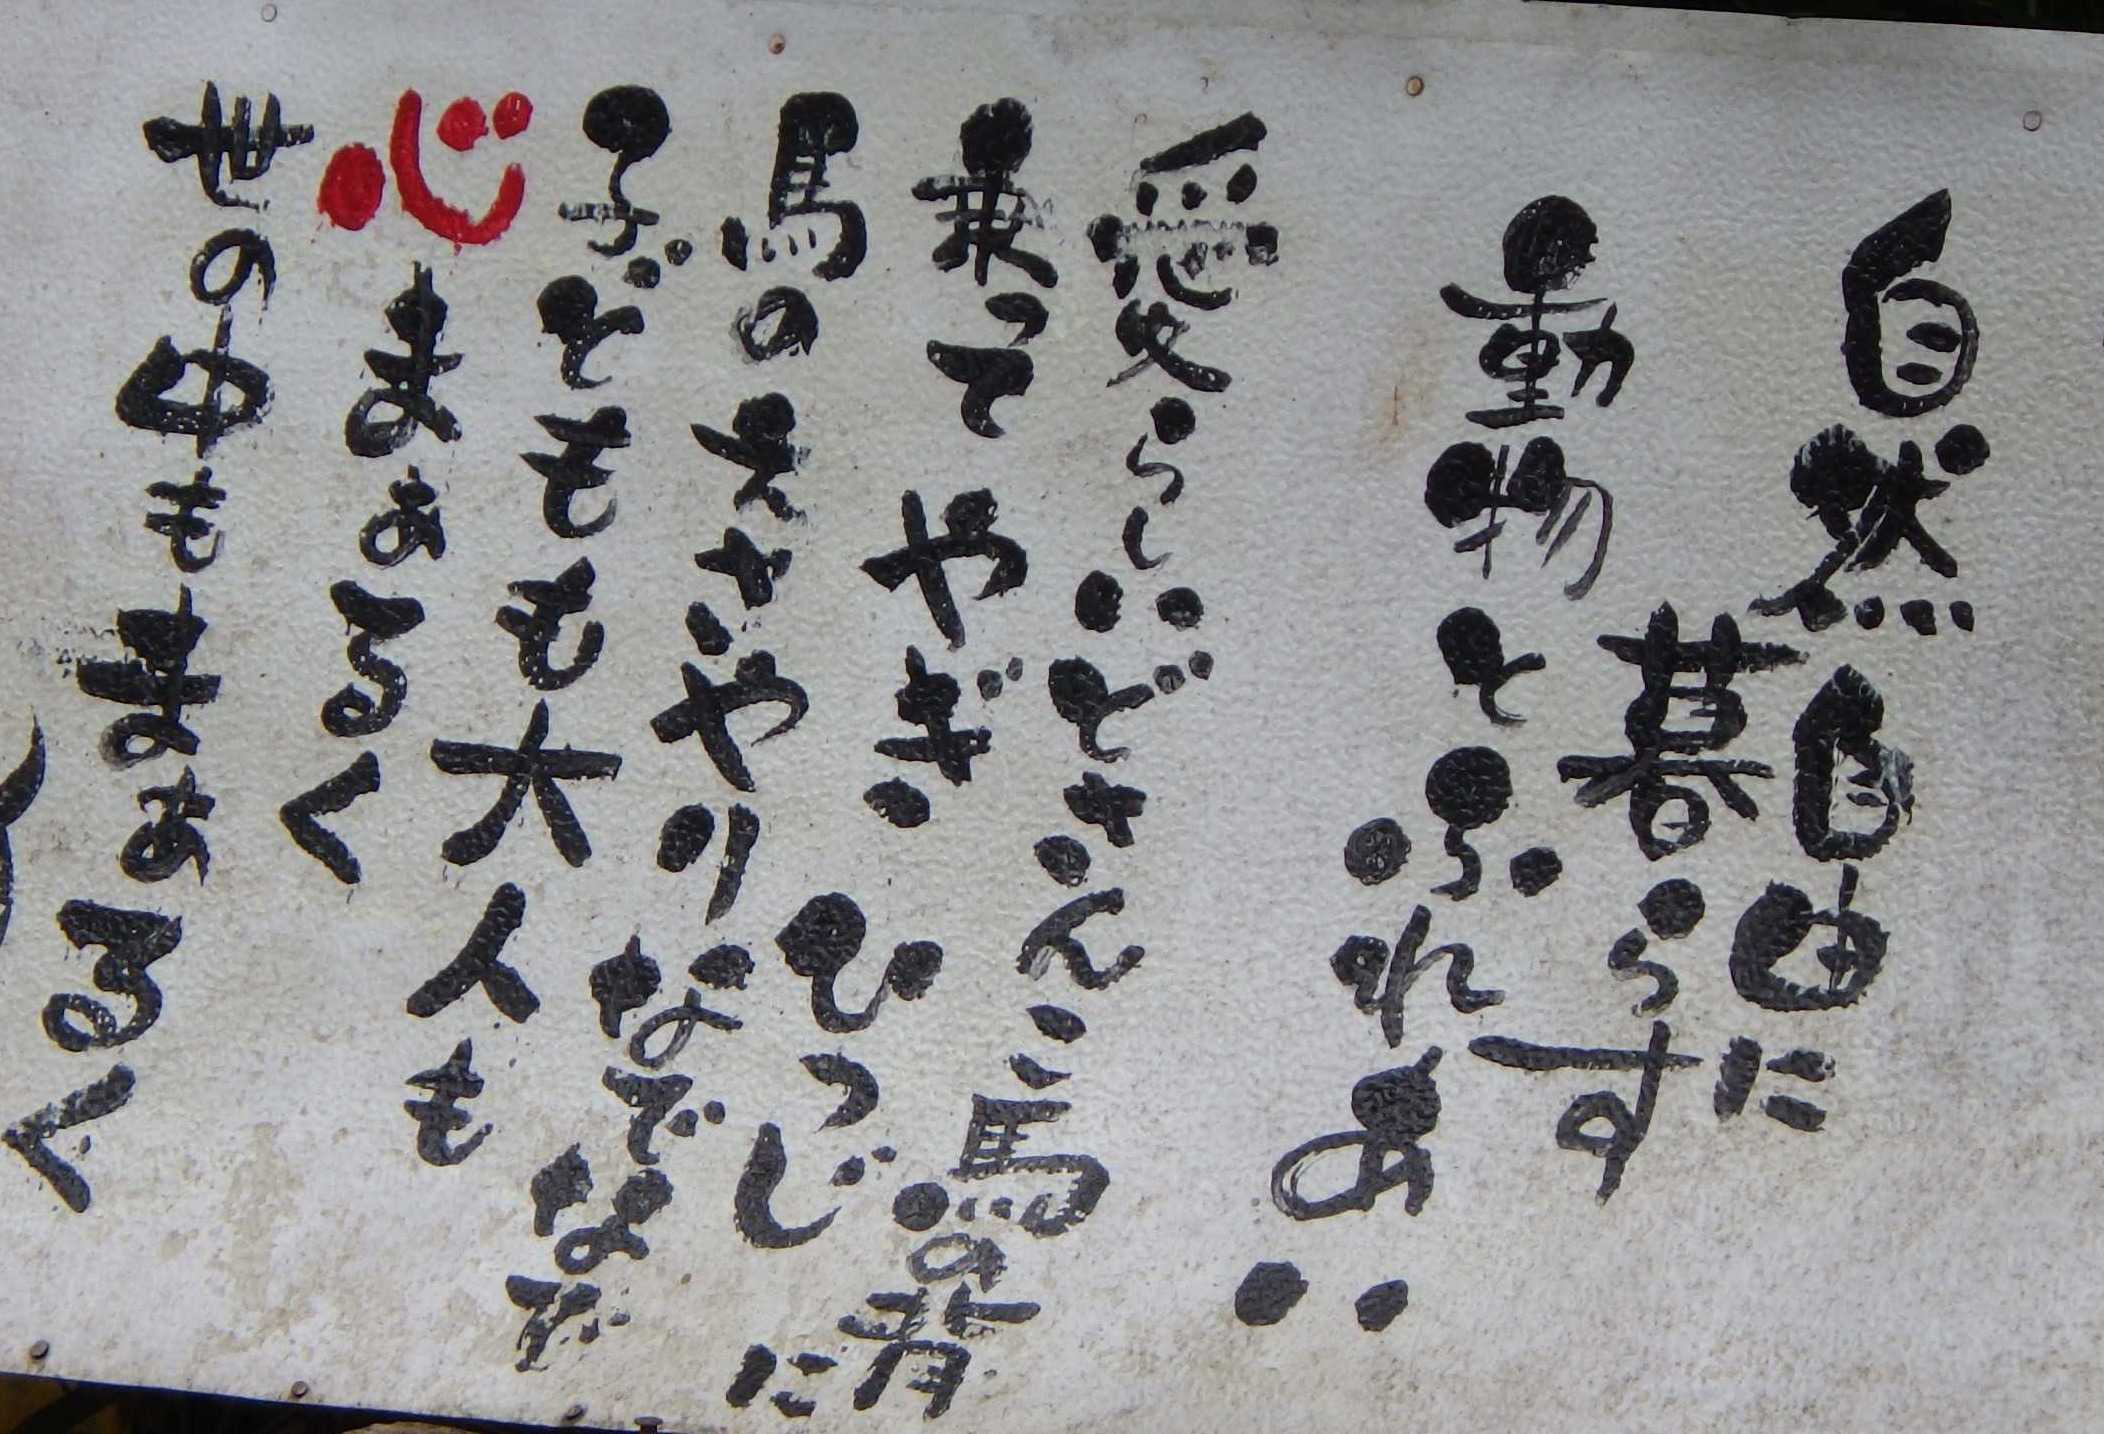 自然自由に
暮らす
動物とふれあい
愛らしいどさんこ馬の背に
乗って やぎ、ひつじ
馬のえさやり なでなで
子どもも大人も
心まぁるく
世の中もまぁるく